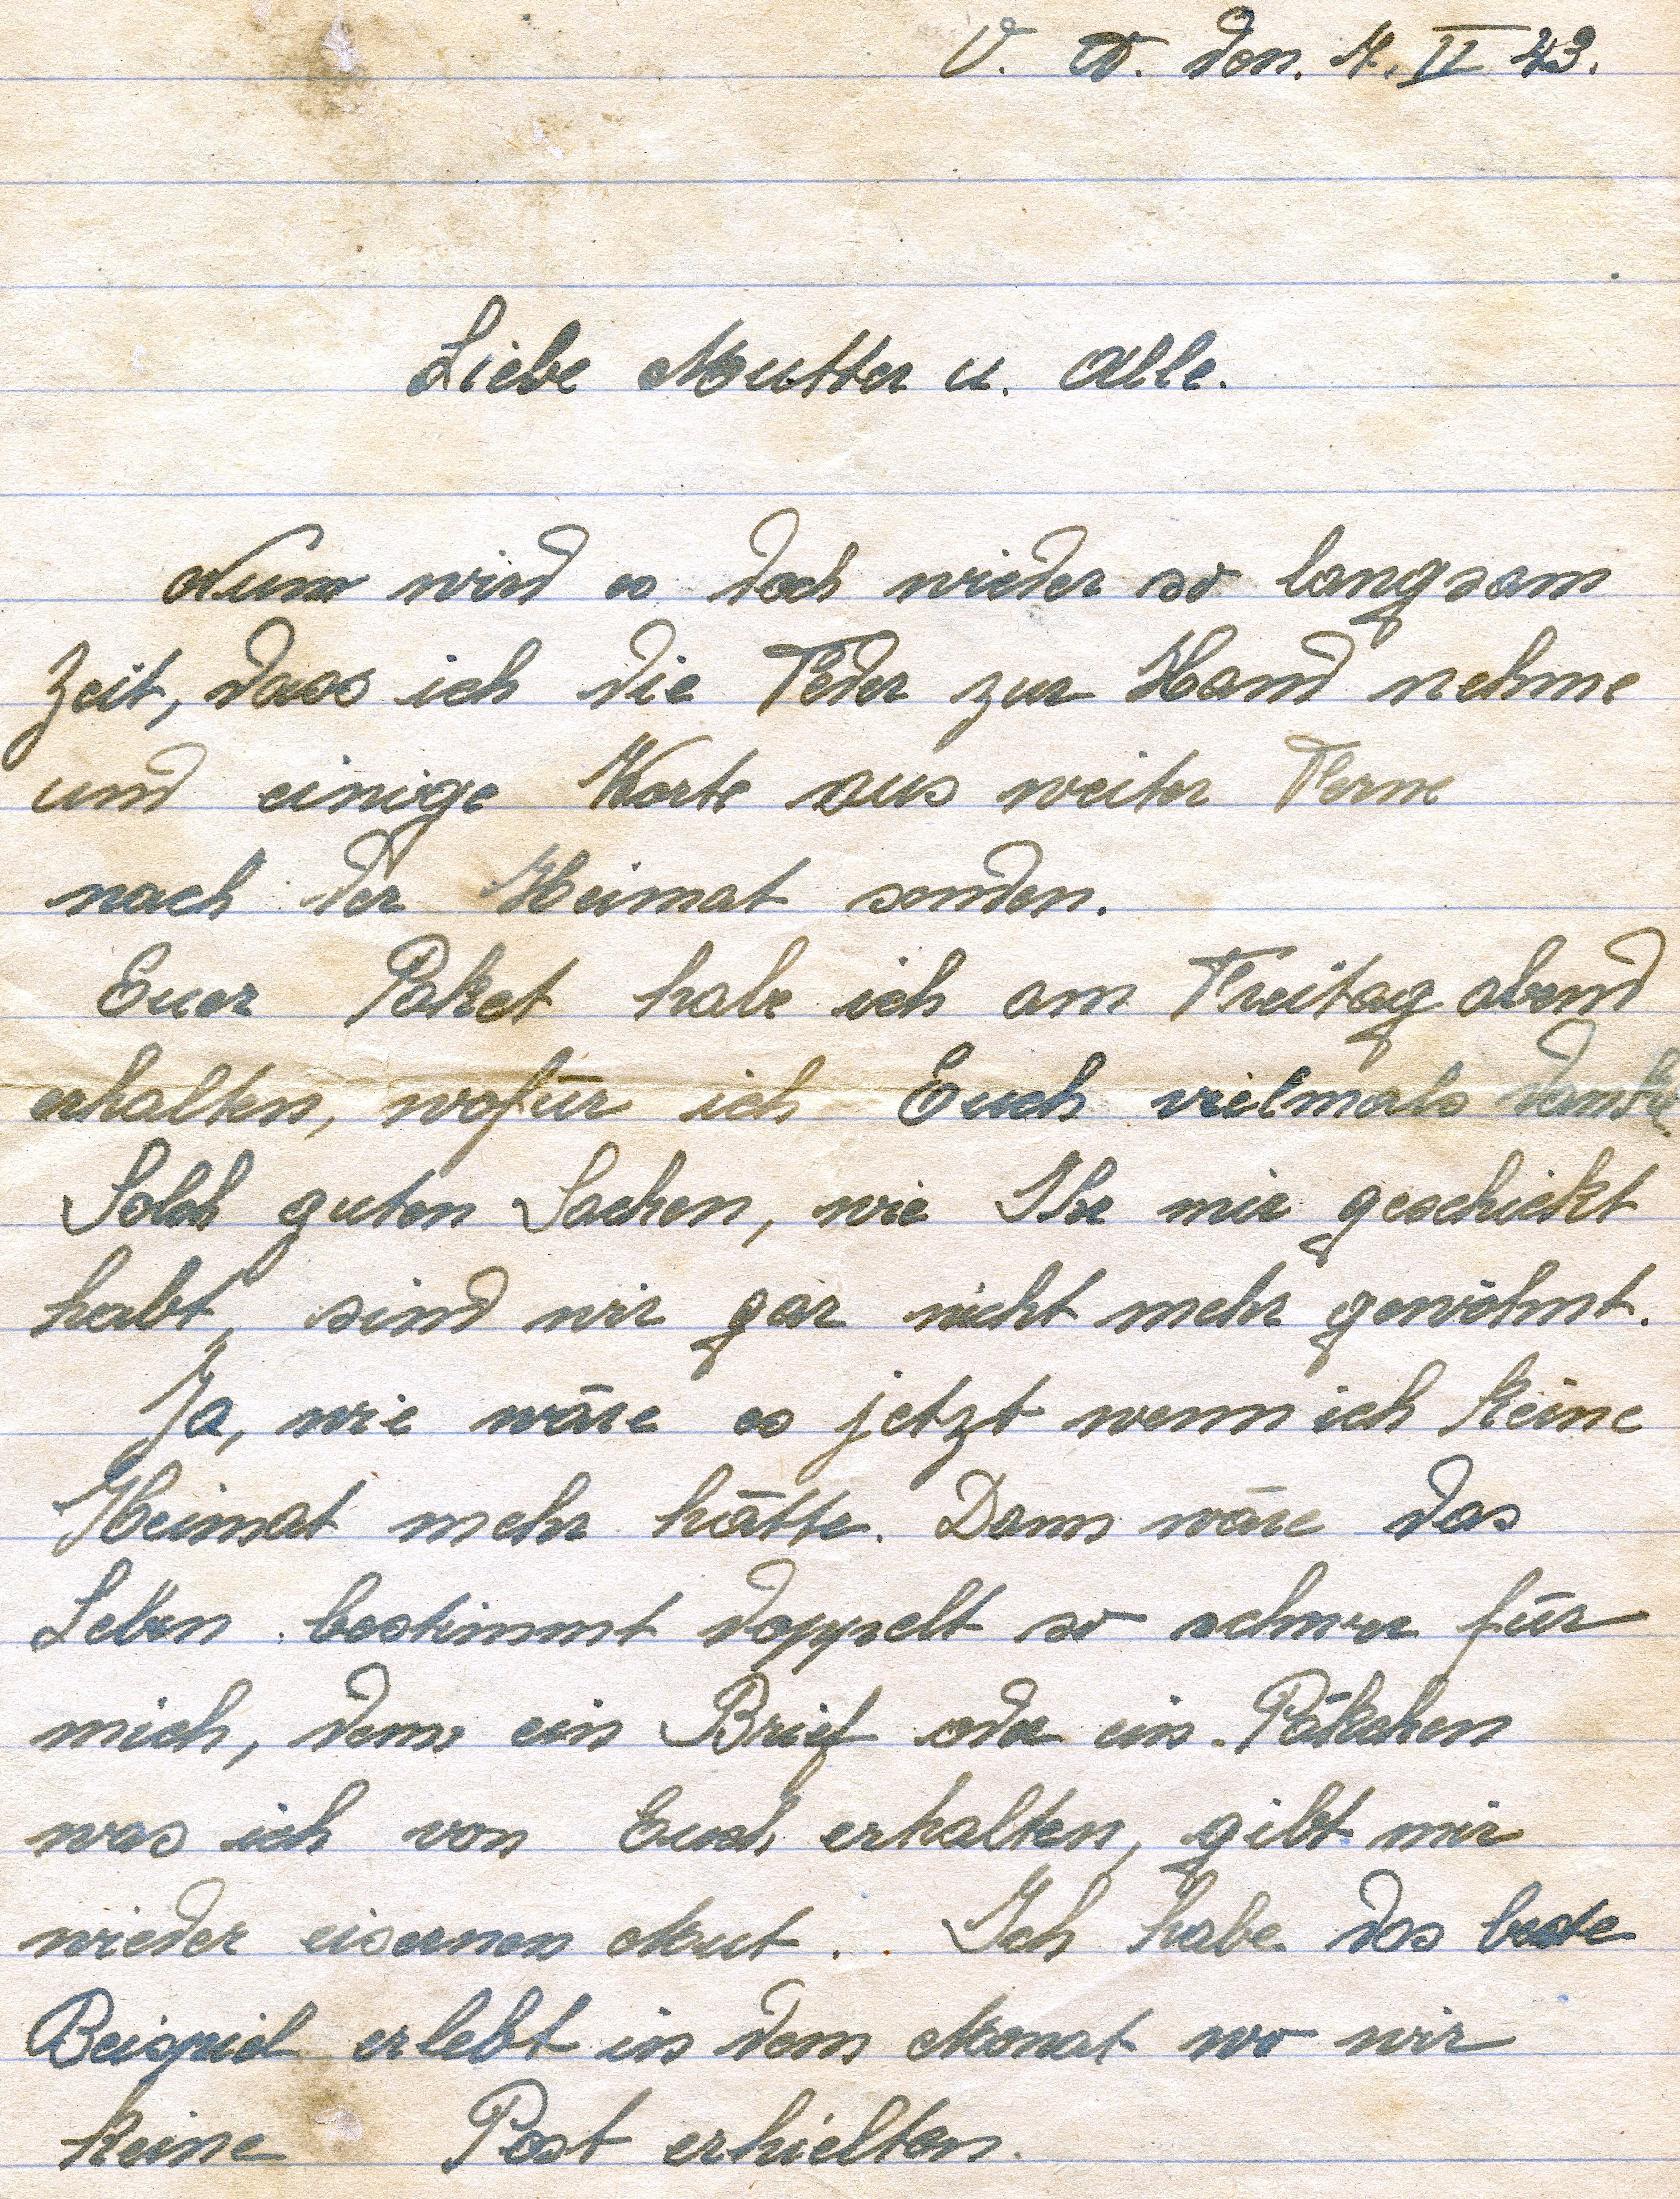 V. O. den. 4. II 43.
Liebe Mutter u. Alle.
Nun wird es doch wieder so langsam
Zeit, dass ich die Feder zur Hand nehme
und einige Worte aus weiter Ferne
nach der Heimat senden.
Euer Paket habe ich am Freitag abend
erhalten, wofür ich Euch vielmals danke.
Solch guten Sachen, wie Ihr mir geschickt
habt, sind wir gar nicht mehr gewöhnt.
Ja, wie wäre es jetzt wenn ich keine
Heimat mehr hätte. Dann wäre das
Leben bestimmt doppelt so schwer für
mich, denn ein Brief oder ein Päkchen
was ich von Euch erhalten, gibt mir
wieder eisernen Mut. Ich habe das beste
Beispiel erlebt in dem Monat wo wir
keine Post erhielten.